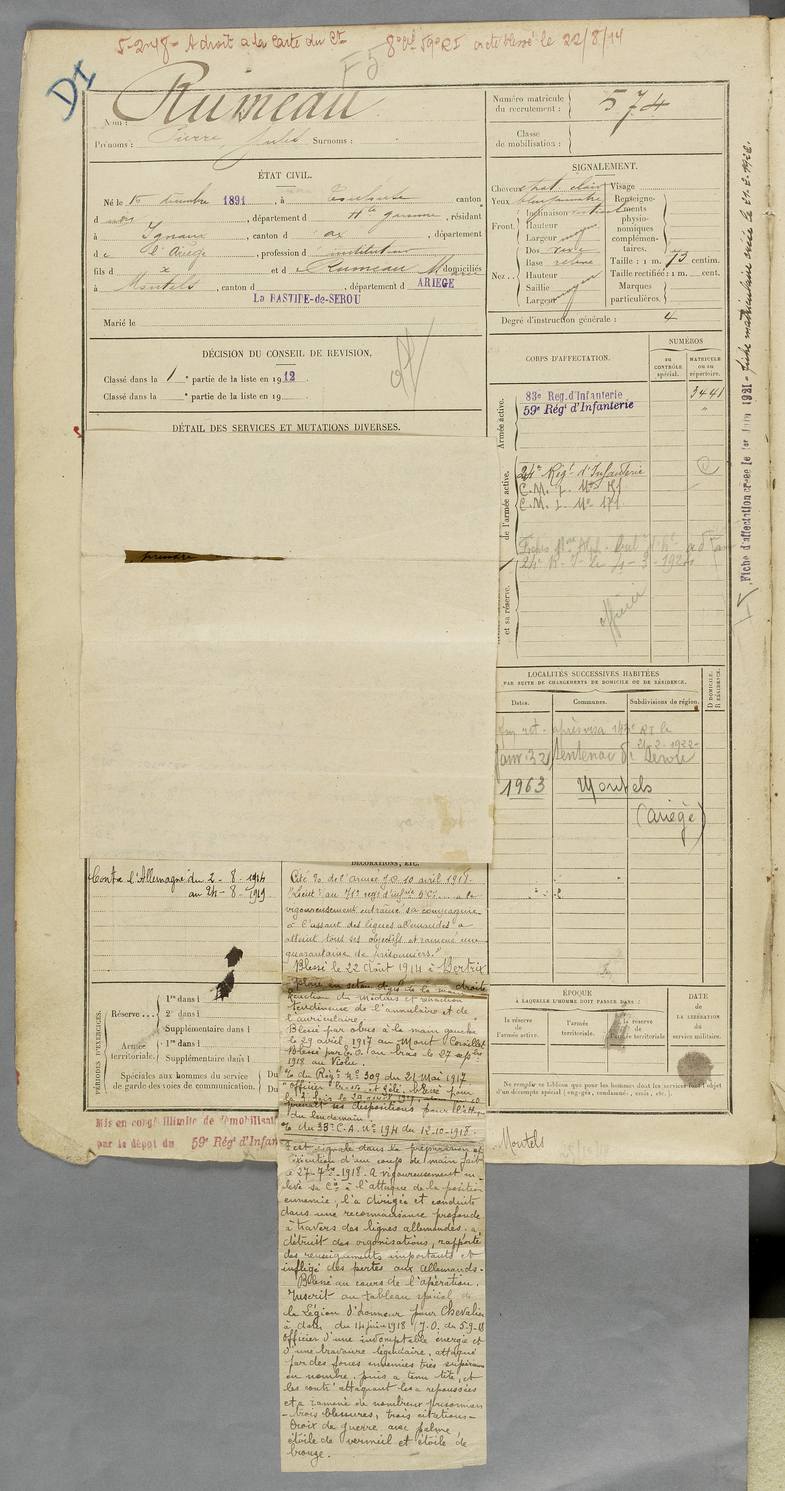 5-2-48 - A droit a la Carte du Ct
8e Cie 59e RI acte blessé le 22/8/14
D1
F5
Nom : Rumeau
Prénoms : Pierre, Jules Surnoms :
ÉTAT CIVIL.
Né le 10 décembre 1891, à Toulouse canton
d dudit, département d Hte Garonne, résidant
à Ignaux, canton d ax, département
de l'Ariège, profession d instituteur
fils d x et d Rumeau Marie domiciliés
à Montels, canton d La BASTIDE-de-SEROU, département d ARIEGE
Marié le
DÉCISION DU CONSEIL DE REVISION.
Classé dans la 1e partie de la liste en 1912
Classé dans la e partie de la liste en 19
off
DÉTAIL DES SERVICES ET MUTATIONS DIVERSES.
prendre
Numéro matricule du recrutement : 574
Classe de mobilisation :
SIGNALEMENT.
Cheveux chat. clair
Yeux
Front. Inclinaison vertical
Hauteur
Largeur moyen
Nez. Dos
Base relevé
Hauteur
Saillie
Largeur moyen
Visage
Renseignements physionomiques complémentaires.
Taille : 1 m. 73 centim.
Taille rectifiée : 1 m. cent.
Marques particulières.
Degré d'instruction générale : 4
CORPS D'AFFECTATION.
NUMÉROS
au CONTRÔLE spécial.
MATRICULE ou au répertoire.
Armée active.
83e Reg. d'Infanterie 3441
59e Régt d'Infanterie "
de l'armée active.
24e Régt d'Infanterie
C.M.I. No 171
C.M.I. No 171
24e R.I. le 4-3-192
et sa réserve.
officier
LOCALITÉS SUCCESSIVES HABITÉES
PAR SUITE DE CHANGEMENTS DE DOMICILE OU DE RÉSIDENCE.
Dates. Communes. Subdivisions de région.
D DOMICILE. R RÉSIDENCE.
après visa 143e RI le
21-2-1922-
Janv 32 Sentenac de Serou
1963 Montels
(Ariège)
Fiche d'affectation créée le 1er Juin 1921 - fiche matriculaire créée le 21.2.1922.
DÉCORATIONS, ETC.
Contre l'Allemagne du 2-8-1914
au 24-8-1919
Cité O. de l'armée J.O. 10 avril 1918.
"Lieutt au 71e régt d'infrie 5e Cie... a
vigoureusement entraîné sa compagnie
à l'assaut des lignes allemandes a
atteint tous ses objectifs et ramené une
quarantaine de prisonniers."
Blessé le 22 Août 1914 à Bertrix
plaie en seton de la main droite
section du médius et réaction
tendineuse de l'annulaire et de
l'auriculaire.
Blessé par obus à la main gauche
le 29 avril 1917 au Mont Cornillet
Blessé par E.O. au bras le 27 septbre
1918 au Violu.
O. du Régt No 309 du 21 Mai 1917
"officier très zélé, blessé pour
la 2e fois le 29 avril 1917
prenait ses dispositions pour l'attaque
du lendemain"
O. du 33e C.A. No 194 du 12-10-1918.
S'est signalé dans la préparation et
l'exécution d'un coup de main fait
le 27-7bre-1918. A vigoureusement en-
levé sa Cie à l'attaque de la position
ennemie, l'a dirigée et conduite
dans une reconnaissance profonde
à travers des lignes allemandes. a
détruit des organisations, rapporté
des renseignements importants et
infligé des pertes aux allemands.
Blessé au cours de l'opération.
Inscrit au tableau spécial de
la Légion d'honneur pour Chevalier
à dater du 14 juin 1918 (J.O. du 5-9-18
Officier d'une indomptable énergie et
d'une bravoure légendaire, attaqué
par des forces ennemies très supérieures
en nombre, puis a tenu tête, et
les contr'attaquant les a repoussées
et a ramené de nombreux prisonniers
- trois blessures, trois citations -
Croix de guerre avec palme,
étoile de vermeil et étoile de
bronze.
PÉRIODES D'EXERCICES.
Réserve
1re dans l
2e dans l
Supplémentaire dans l
Armée territoriale.
1re dans l
Supplémentaire dans l
Spéciales aux hommes du service de garde des voies de communication.
Du
Du
Mis en congé illimité de démobilisation
par le dépôt du 59e Régt d'Infan
ÉPOQUE
À LAQUELLE L'HOMME DOIT PASSER DANS :
la réserve de l'armée active.
l'armée territoriale.
la réserve de l'armée territoriale.
DATE de LA LIBÉRATION du service militaire.
Ne remplir ce tableau que pour les hommes dont les services font l'objet
d'un décompte spécial (engagés, condamnés, omis, etc.).
Montels